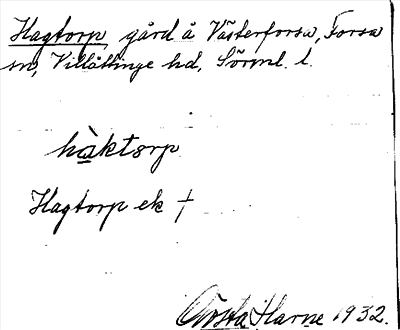 Hagtorp, gård å Västerforsa, Forsa
sn, Villåttinge hd, Sörml. l.
hàktorp
Hagtorp ek †
Gösta Harne 1932.